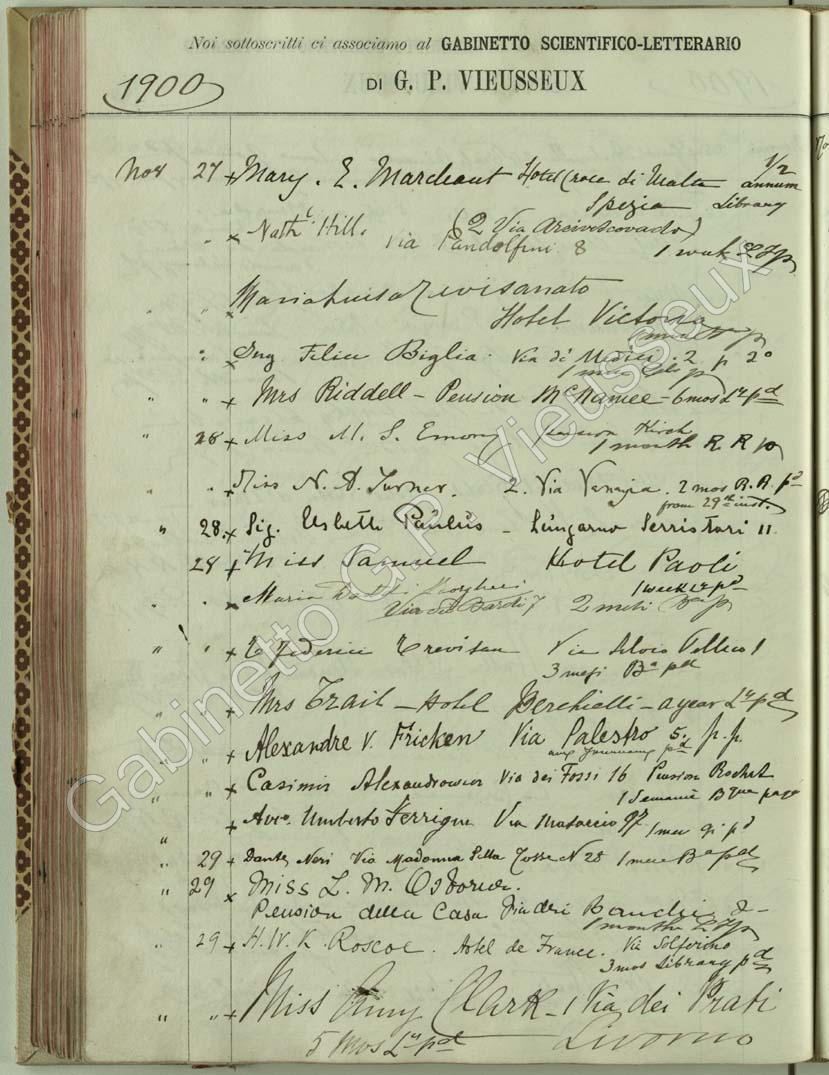 Noi sottoscritti ci associamo al GABINETTO SCIENTIFICO-LETTERARIO
1900
DI G. P. VIEUSSEUX
Nov 27 x Mary. E. Marchant Hotel Croce di Malta 1/2 annum
Spezia Library
" x Nath^l Hill. (2 Via Arcivescovado)
Via Pandolfini 8
1 week
" " x Maria Luisa Trevisanato
Hotel Victoria
" x Ing Felice Biglia. Via di Medici. 2 p 2º
1 mese
" " x Mrs Riddell - Pension McNamee - 6 mos L^y p^d
" 28 x Miss M. S. Emory pension
1 month R. R p
" x Miss N. A. Turner. 2. Via Venezia. 2 mos R. R. p^d
from 29th inst.
" 28. x Sig. Lisbeth Paulus - Lungarno Serristori 11
28 x Miss Samuel Hotel Paoli
1 week L^y p^d
" x Maria
Via de Bardi 7 2 mesi
" " x Federici Trevisan Via Silvio Pellico 1
3 mesi B^a p^d
" " x Mrs Trail - Hotel Berchielli - a year L^y p^d
" " x Alexandre v. Fricken Via Palestro 5. p. p.
" " x Casimir Via dei Fossi 16 Pension Rochat
1 Semaine B^que
" x Avv. Umberto Ferrigni Via Masaccio 97 1 mese
" 29 x Dante Neri Via Madonna della Tosse N 28 1 mese B^a
" 29 x Miss L. M. Osborne.
Pension della Casa Via dei Banchi
1 month L^y p
" 29 x H. W. K. Roscoe. Hotel de France. Via Solferino
3 mos Library p^d
" " x Miss Amy Clark - 1 Via dei Prati
5 Mos L^y p^d Livorno
Gabinetto G.P. Vieusseux